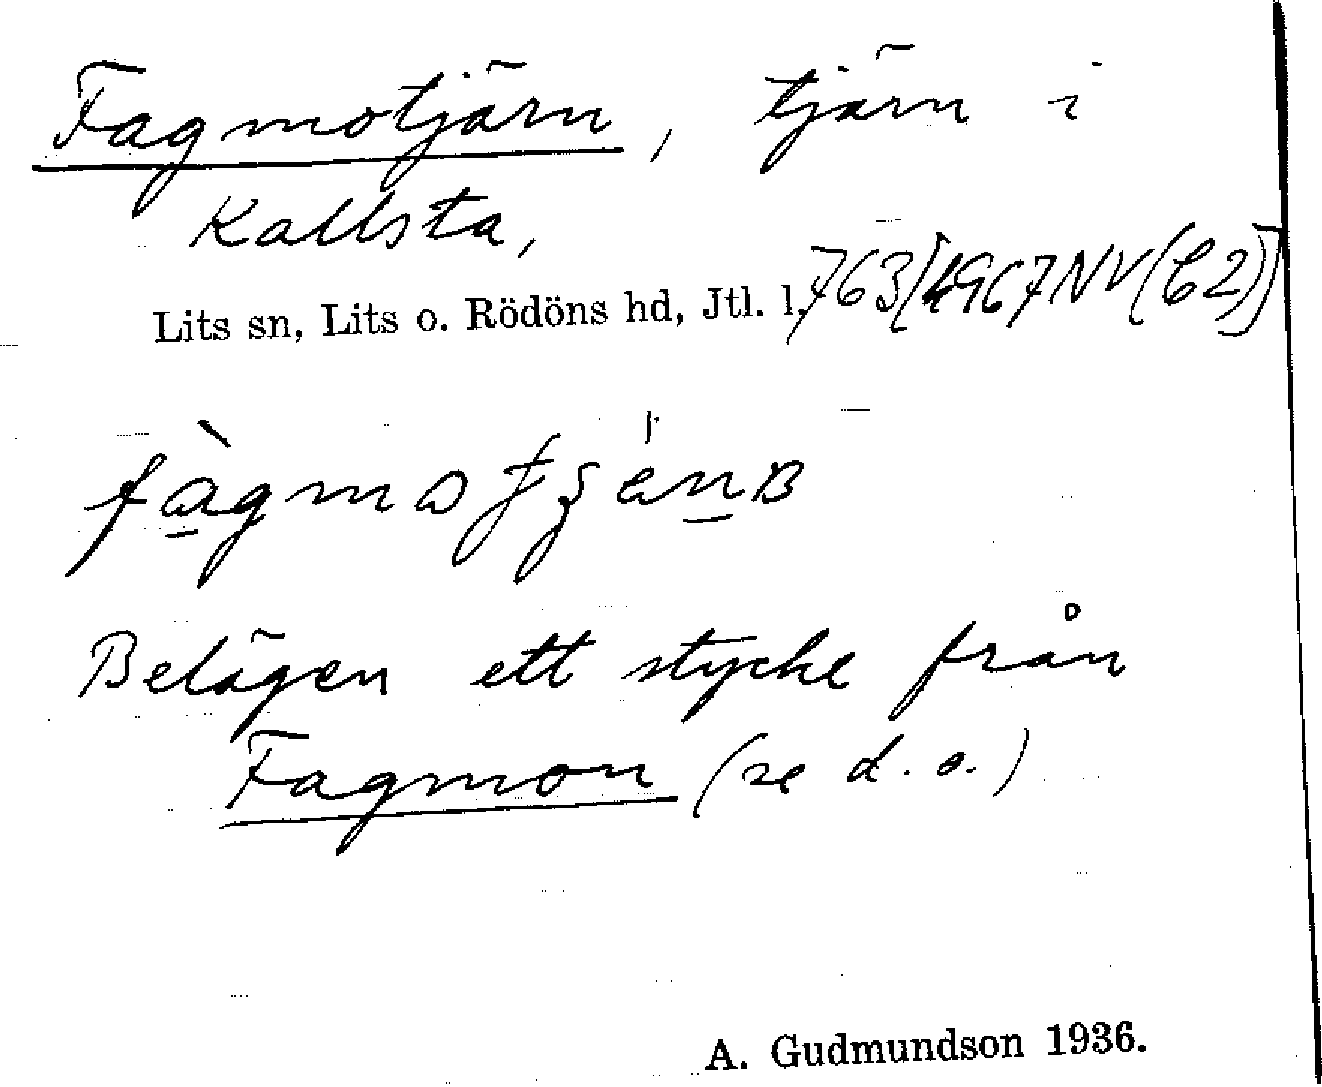 Fagmotjärn, tjärn i
Kallsta,
Lits sn, Lits o. Rödöns hd, Jtl. l. 763[4967NV(C2)]
Belägen ett stycke från
Fagmon (se d. o.)
A. Gudmundson 1936.